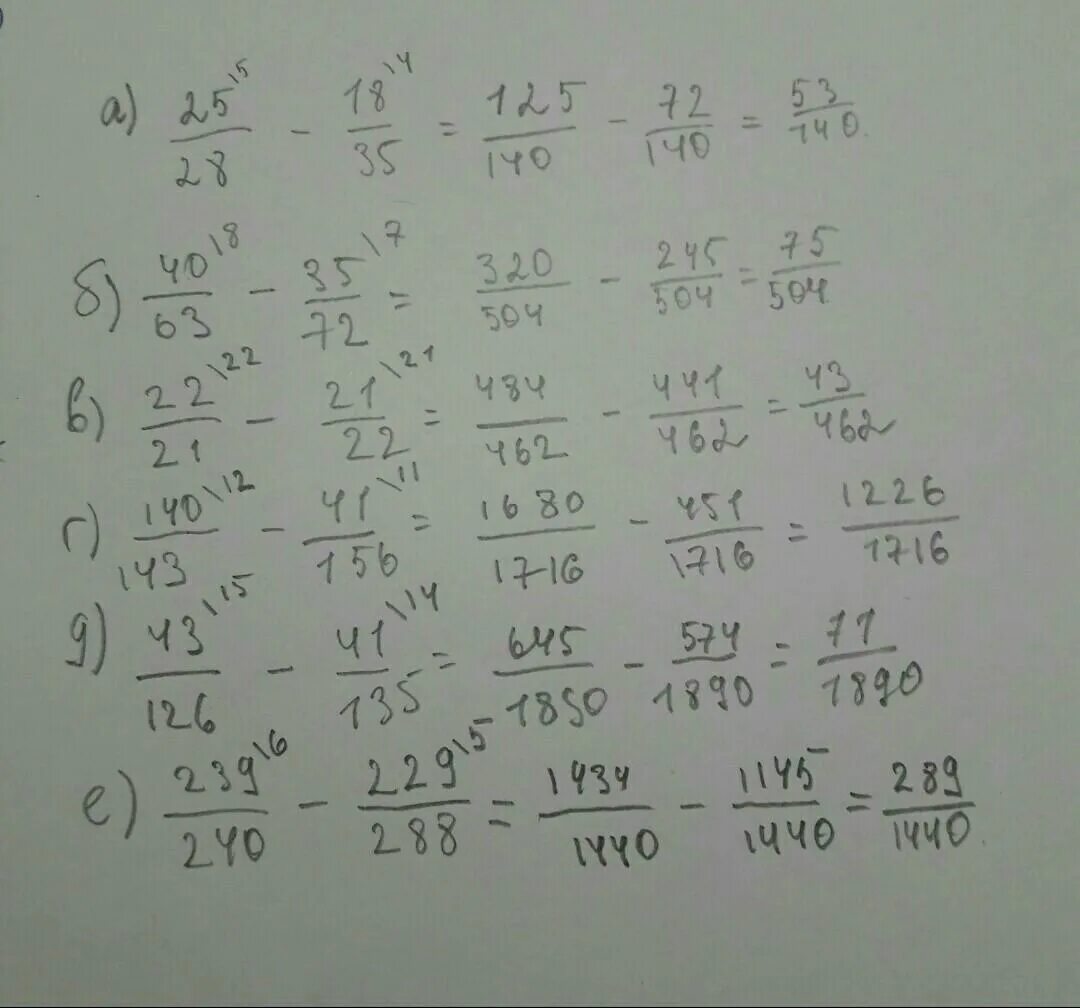 а) 25\5/28 - 18\4/35 = 125/140 - 72/140 = 53/140.
б) 40\8/63 - 35\7/72 = 320/504 - 245/504 = 75/504
в) 22\22/21 - 21\21/22 = 484/462 - 441/462 = 43/462
г) 140\12/143 - 41\11/156 = 1680/1716 - 451/1716 = 1226/1716
д) 43\15/126 - 41\14/135 = 645/1890 - 574/1890 = 71/1890
е) 239\6/240 - 229\5/288 = 1434/1440 - 1145/1440 = 289/1440.